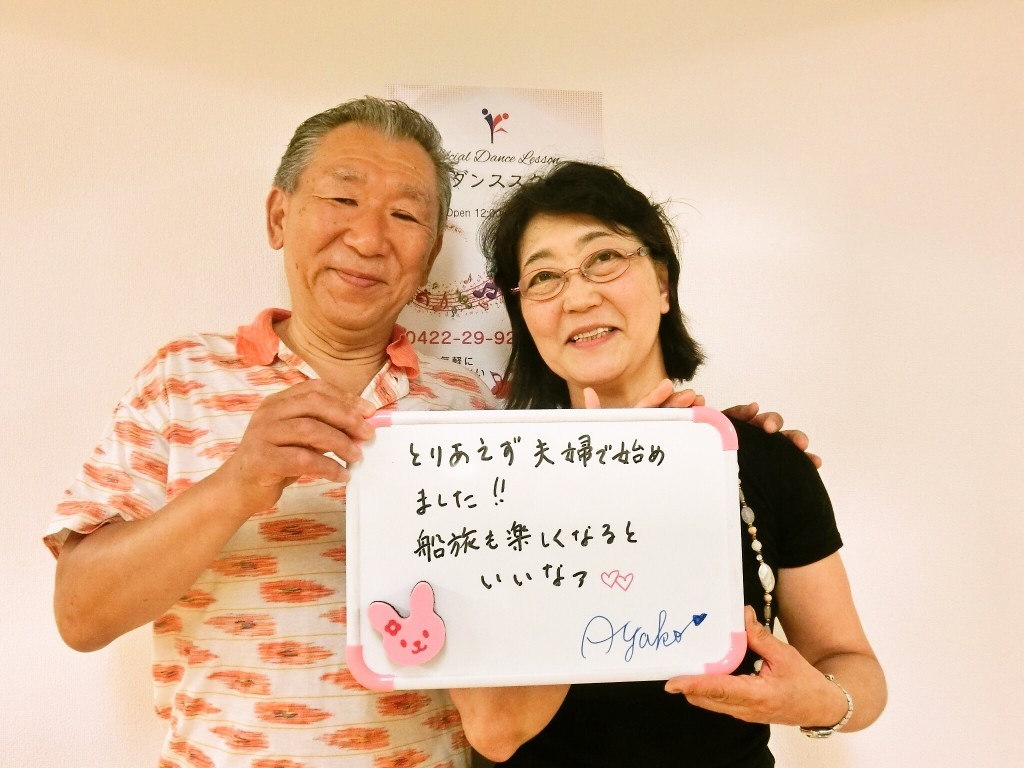 Dance Lesson
ダンスス
Open 12:00
0422-29-92
気軽に
とりあえず夫婦で始め
ました!!
船旅も楽しくなると
いいなァ
Ayako